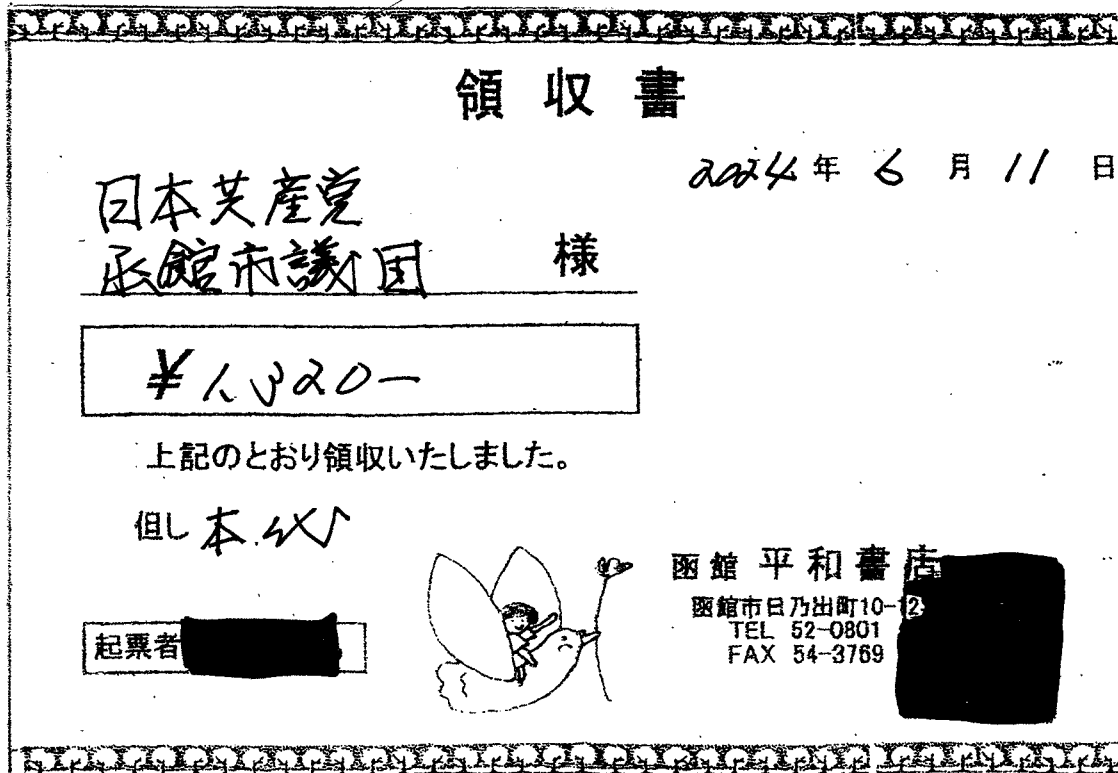 領収書
2024年 6月 11日
日本共産党
函館市議団 様
¥1,320-
上記のとおり領収いたしました。
但し 本代
函館 平和書店
函館市日乃出町10-12
TEL 52-0801
FAX 54-3769
起票者